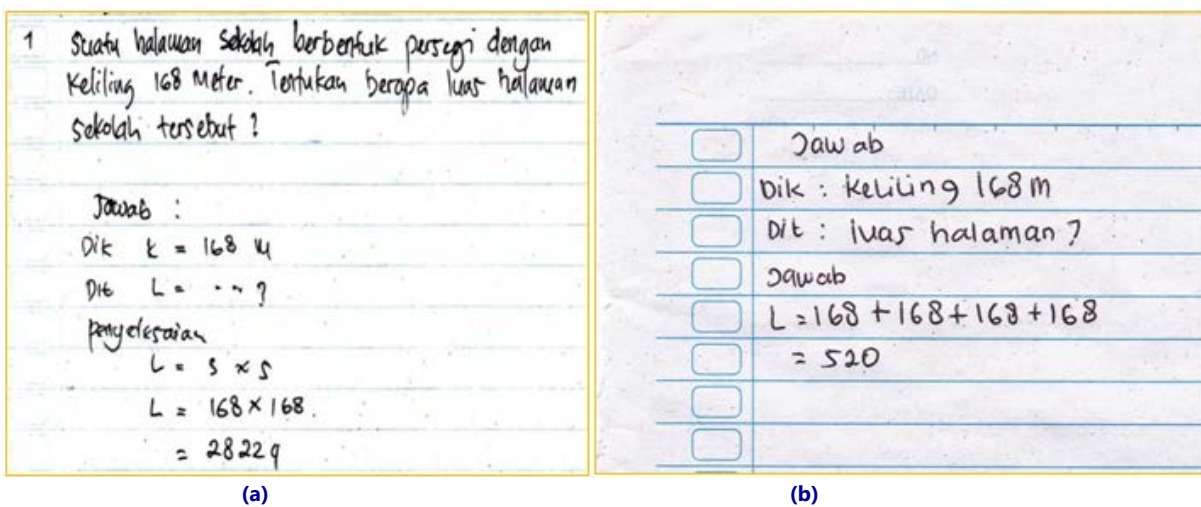 1 Suatu halaman Sekolah berbentuk persegi dengan
Keliling 168 Meter. Tentukan berapa luas halaman
Sekolah tersebut ?
Jawab :
Dik k = 168 M
Dit L = ... ?
penyelesaian
L = s x s
L = 168 x 168.
= 28229
(a)
NO
DATE:
Jawab
Dik : Keliling 168 m
Dit : luas halaman ?
Jawab
L = 168 + 168 + 168 + 168
= 520
(b)